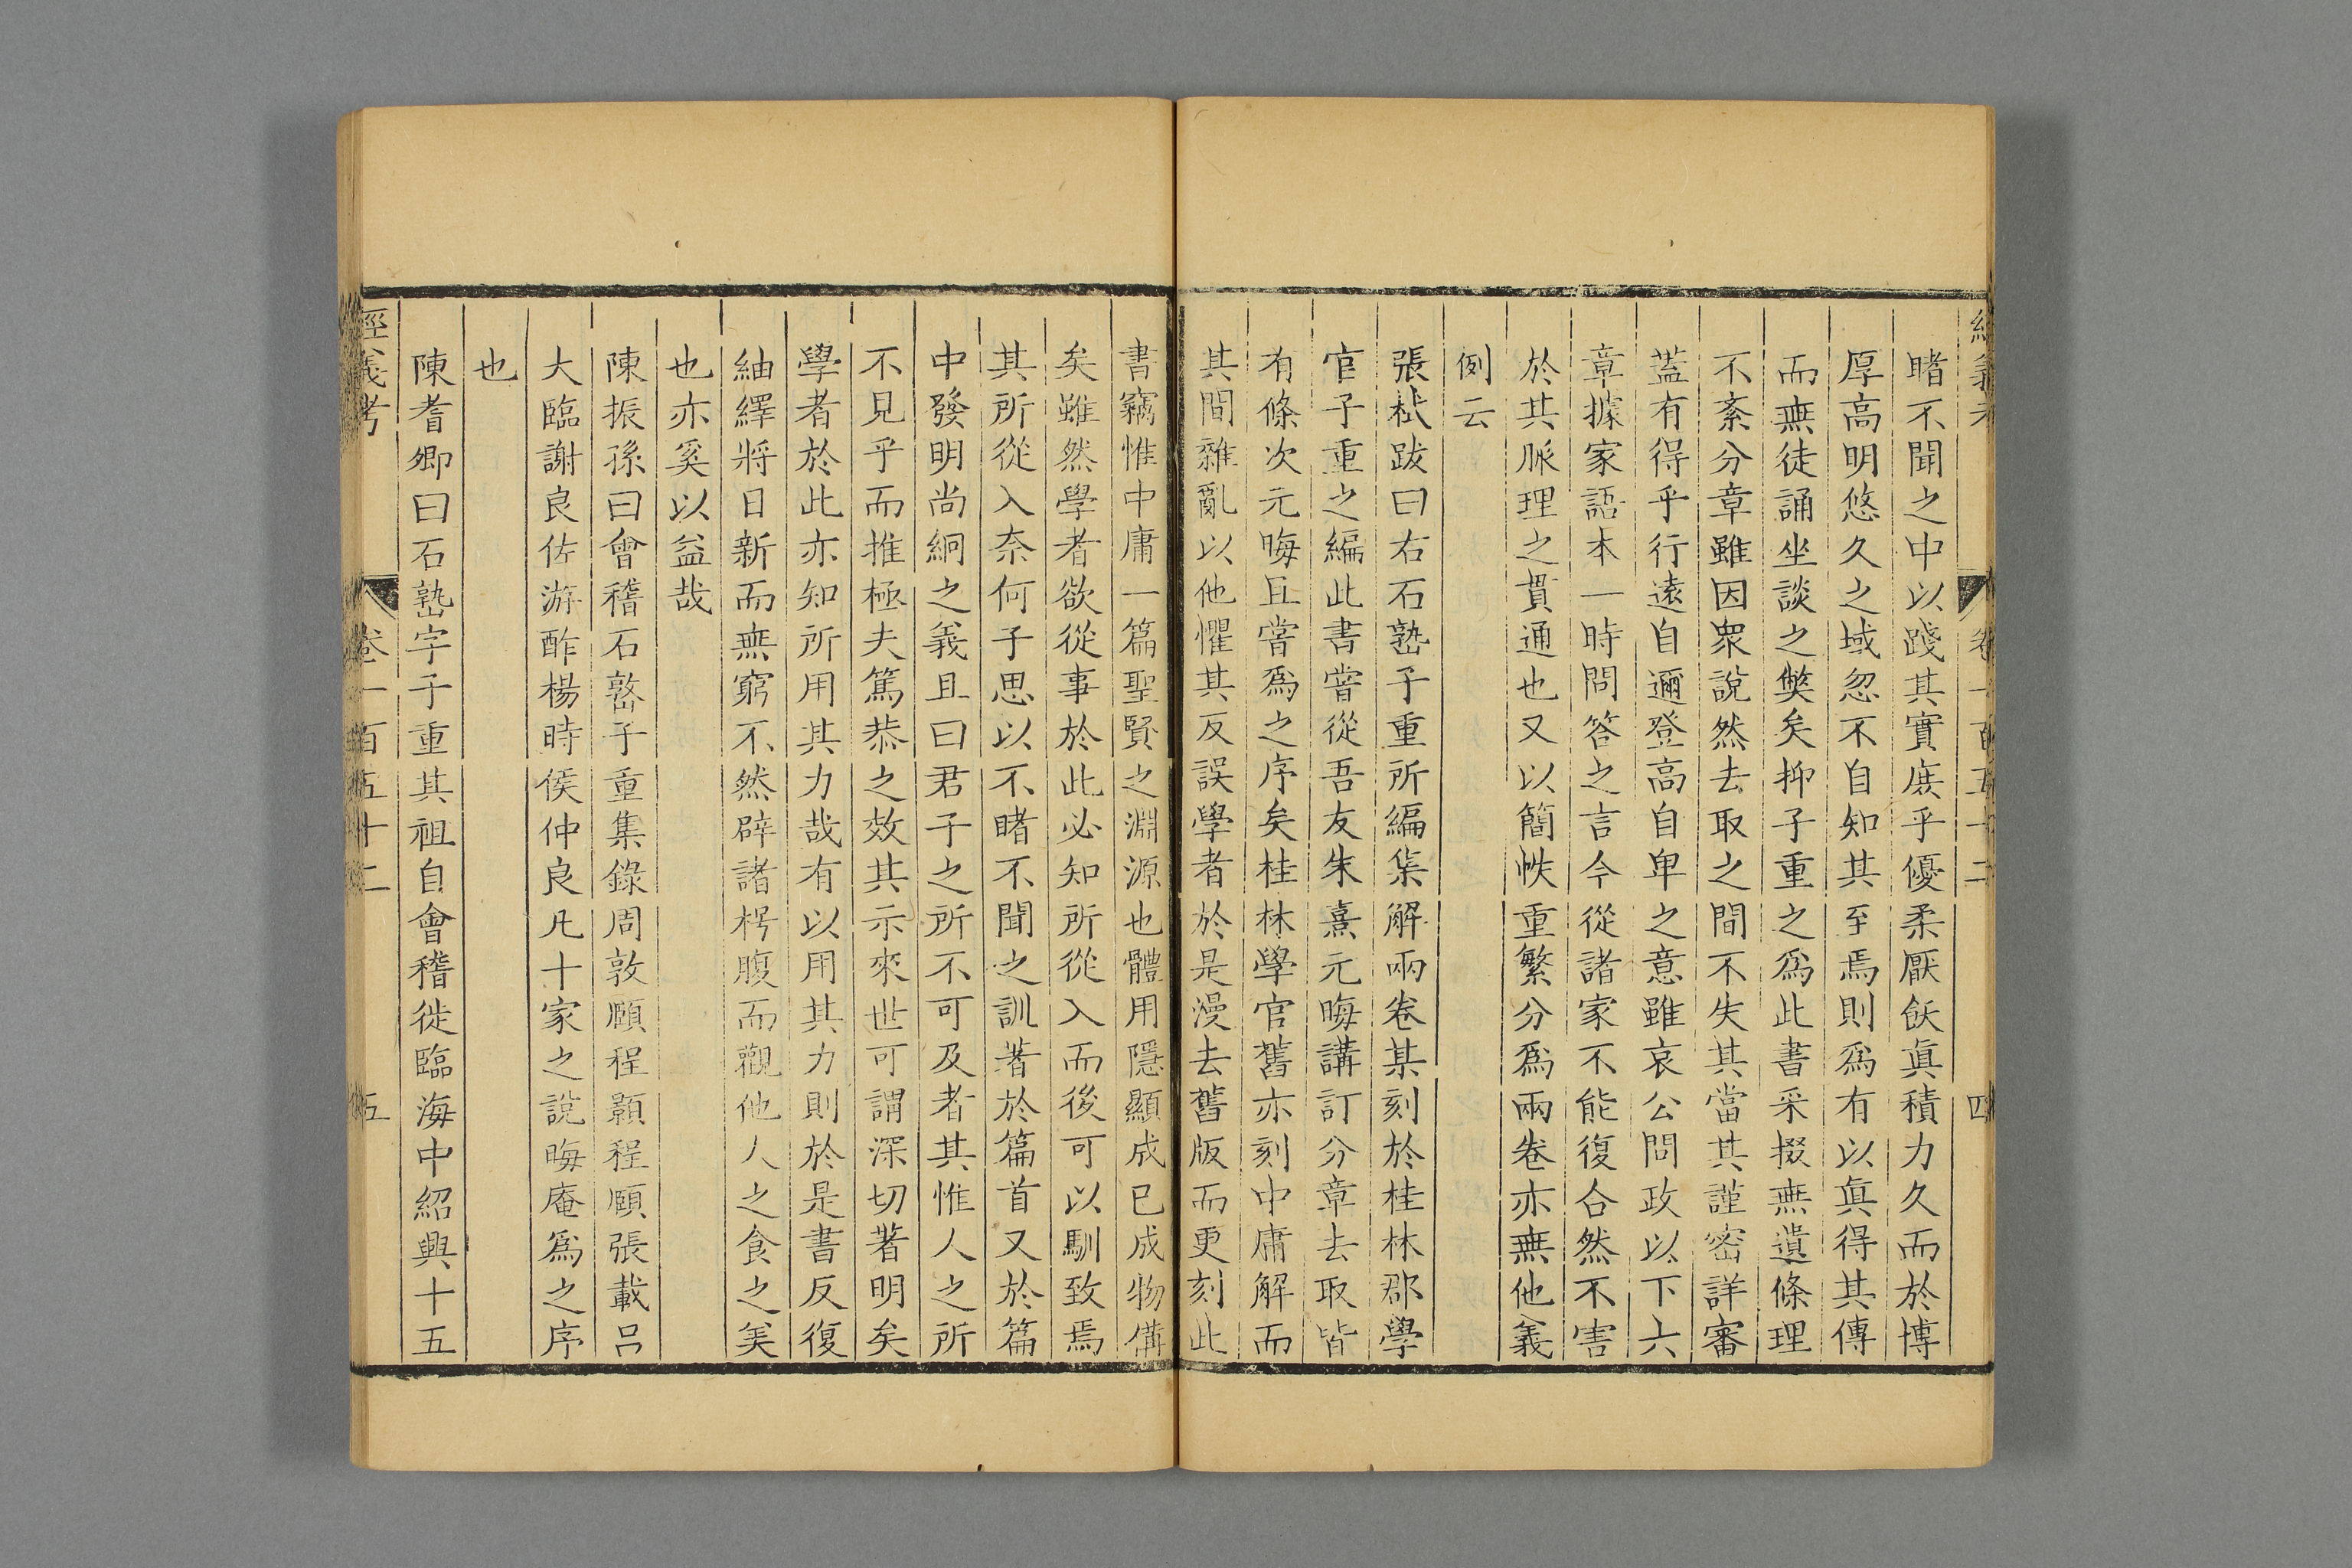 經義考 卷一百五十二 四
睹不聞之中以踐其實庶乎優柔厭飫眞積力久而於博
厚高明悠久之域忽不自知其至焉則爲有以眞得其傳
而無徒誦坐談之獘矣抑子重之爲此書采掇無遺條理
不紊分章雖因衆說然去取之間不失其當其謹密詳審
葢有得乎行遠自邇登高自卑之意雖哀公問政以下六
章據家語本一時問答之言今從諸家不能復合然不害
於其脈理之貫通也又以簡帙重繁分爲兩卷亦無他義
例云
張栻跋曰右石𡼖子重所編集解兩卷某刻於桂林郡學
官子重之編此書嘗從吾友朱熹元晦講訂分章去取皆
有條次元晦且嘗爲之序矣桂林學官舊亦刻中庸解而
其間雜亂以他懼其反誤學者於是漫去舊版而更刻此
書竊惟中庸一篇聖賢之淵源也體用隱顯成已成物僃
矣雖然學者欲從事於此必知所從入而後可以馴致焉
其所從入奈何子思以不睹不聞之訓著於篇首又於篇
中發明尚絅之義且曰君子之所不可及者其惟人之所
不見乎而推極夫篤恭之效其示來世可謂深切著明矣
學者於此亦知所用其力哉有以用其力則於是書反復
紬繹將日新而無窮不然辟諸枵腹而觀他人之食之美
也亦奚以益哉
陳振孫曰會稽石𡼖子重集錄周敦頤程顥程頤張載呂
大臨謝良佐游酢楊時侯仲良凡十家之說晦庵爲之序
也
陳耆卿曰石𡼖字子重其祖自會稽徙臨海中紹興十五
經義考 卷一百五十二 五